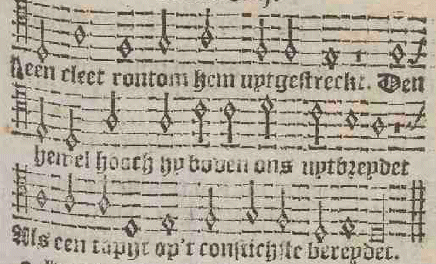 Als een cleet rontom hem uytgestreckt. Den
hemel hooch hy boven ons uytbreydet
Als een tapijt op't constichste bereydet.